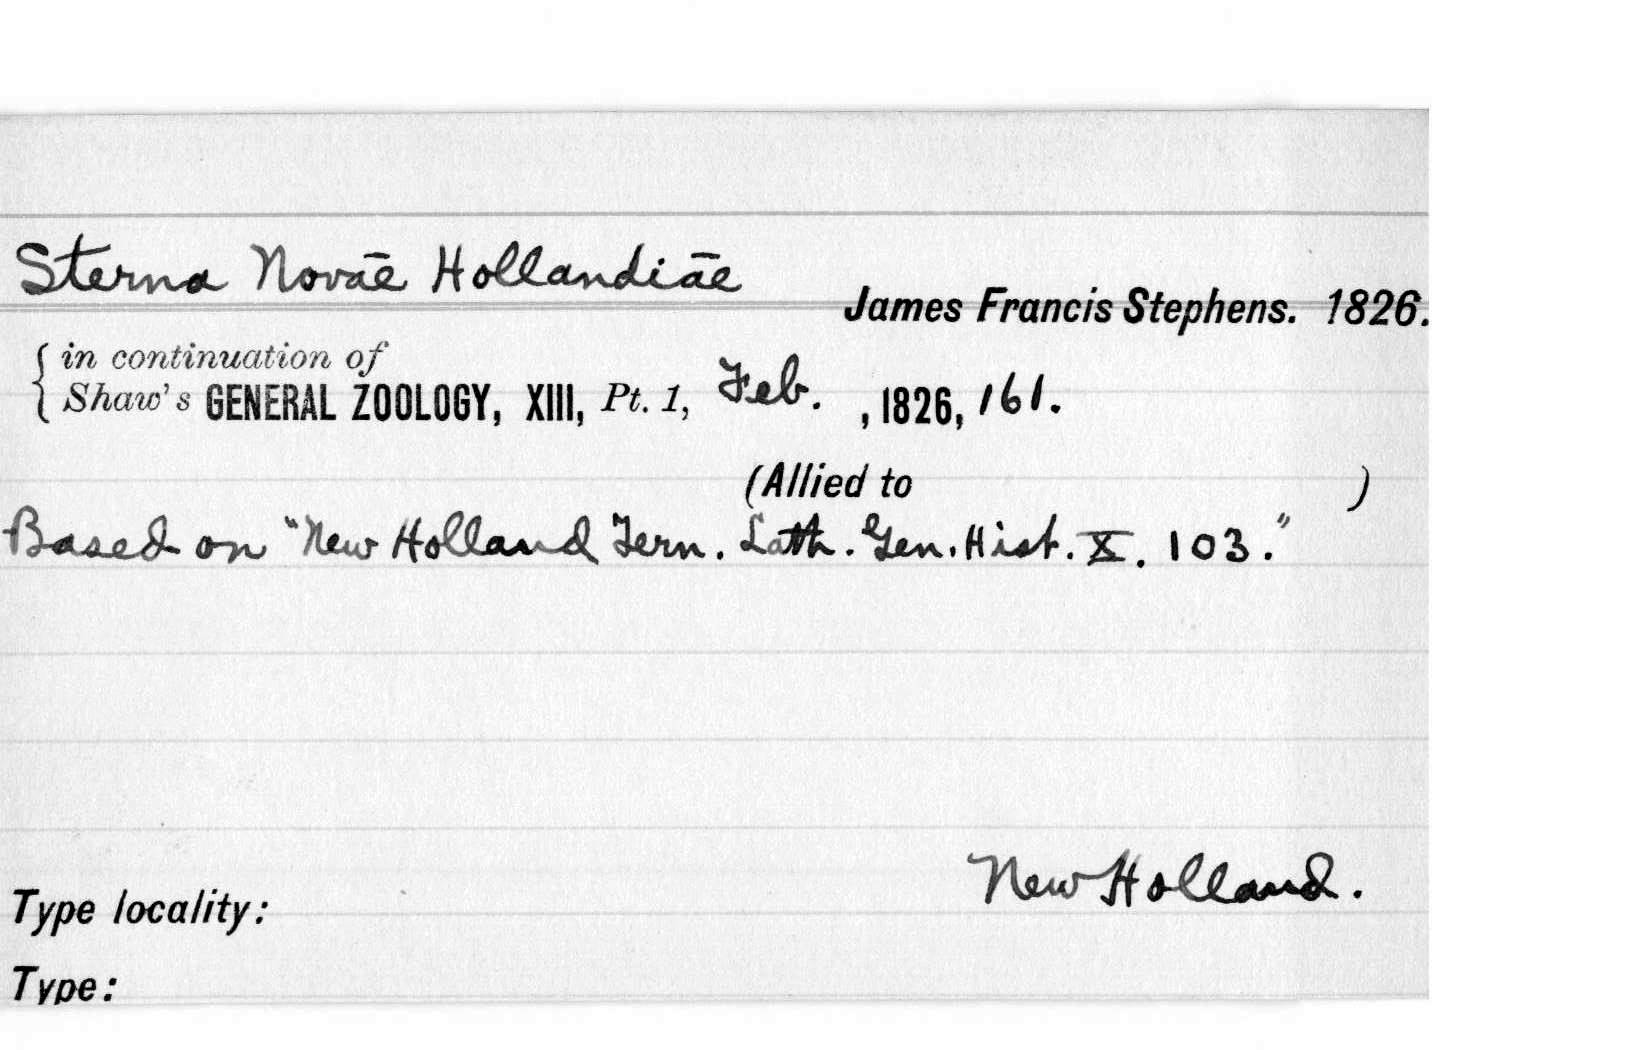 Sterna Novāe Hollandiāe
James Francis Stephens. 1826.
{ in continuation of
Shaw's GENERAL ZOOLOGY, XIII, Pt. 1, Feb. , 1826, 161.
(Allied to )
Based on "New Holland Tern. Lath. Gen. Hist. X. 103."
New Holland.
Type locality:
Type: